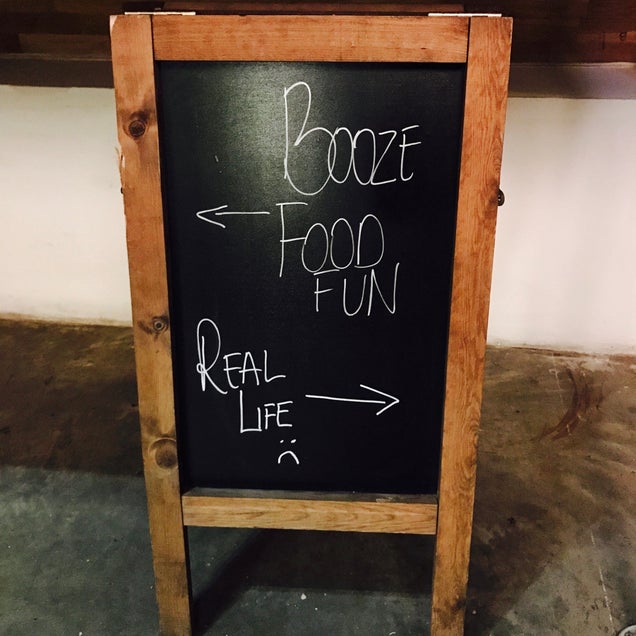 BOOZE
← FOOD
FUN
REAL
LIFE →
:(